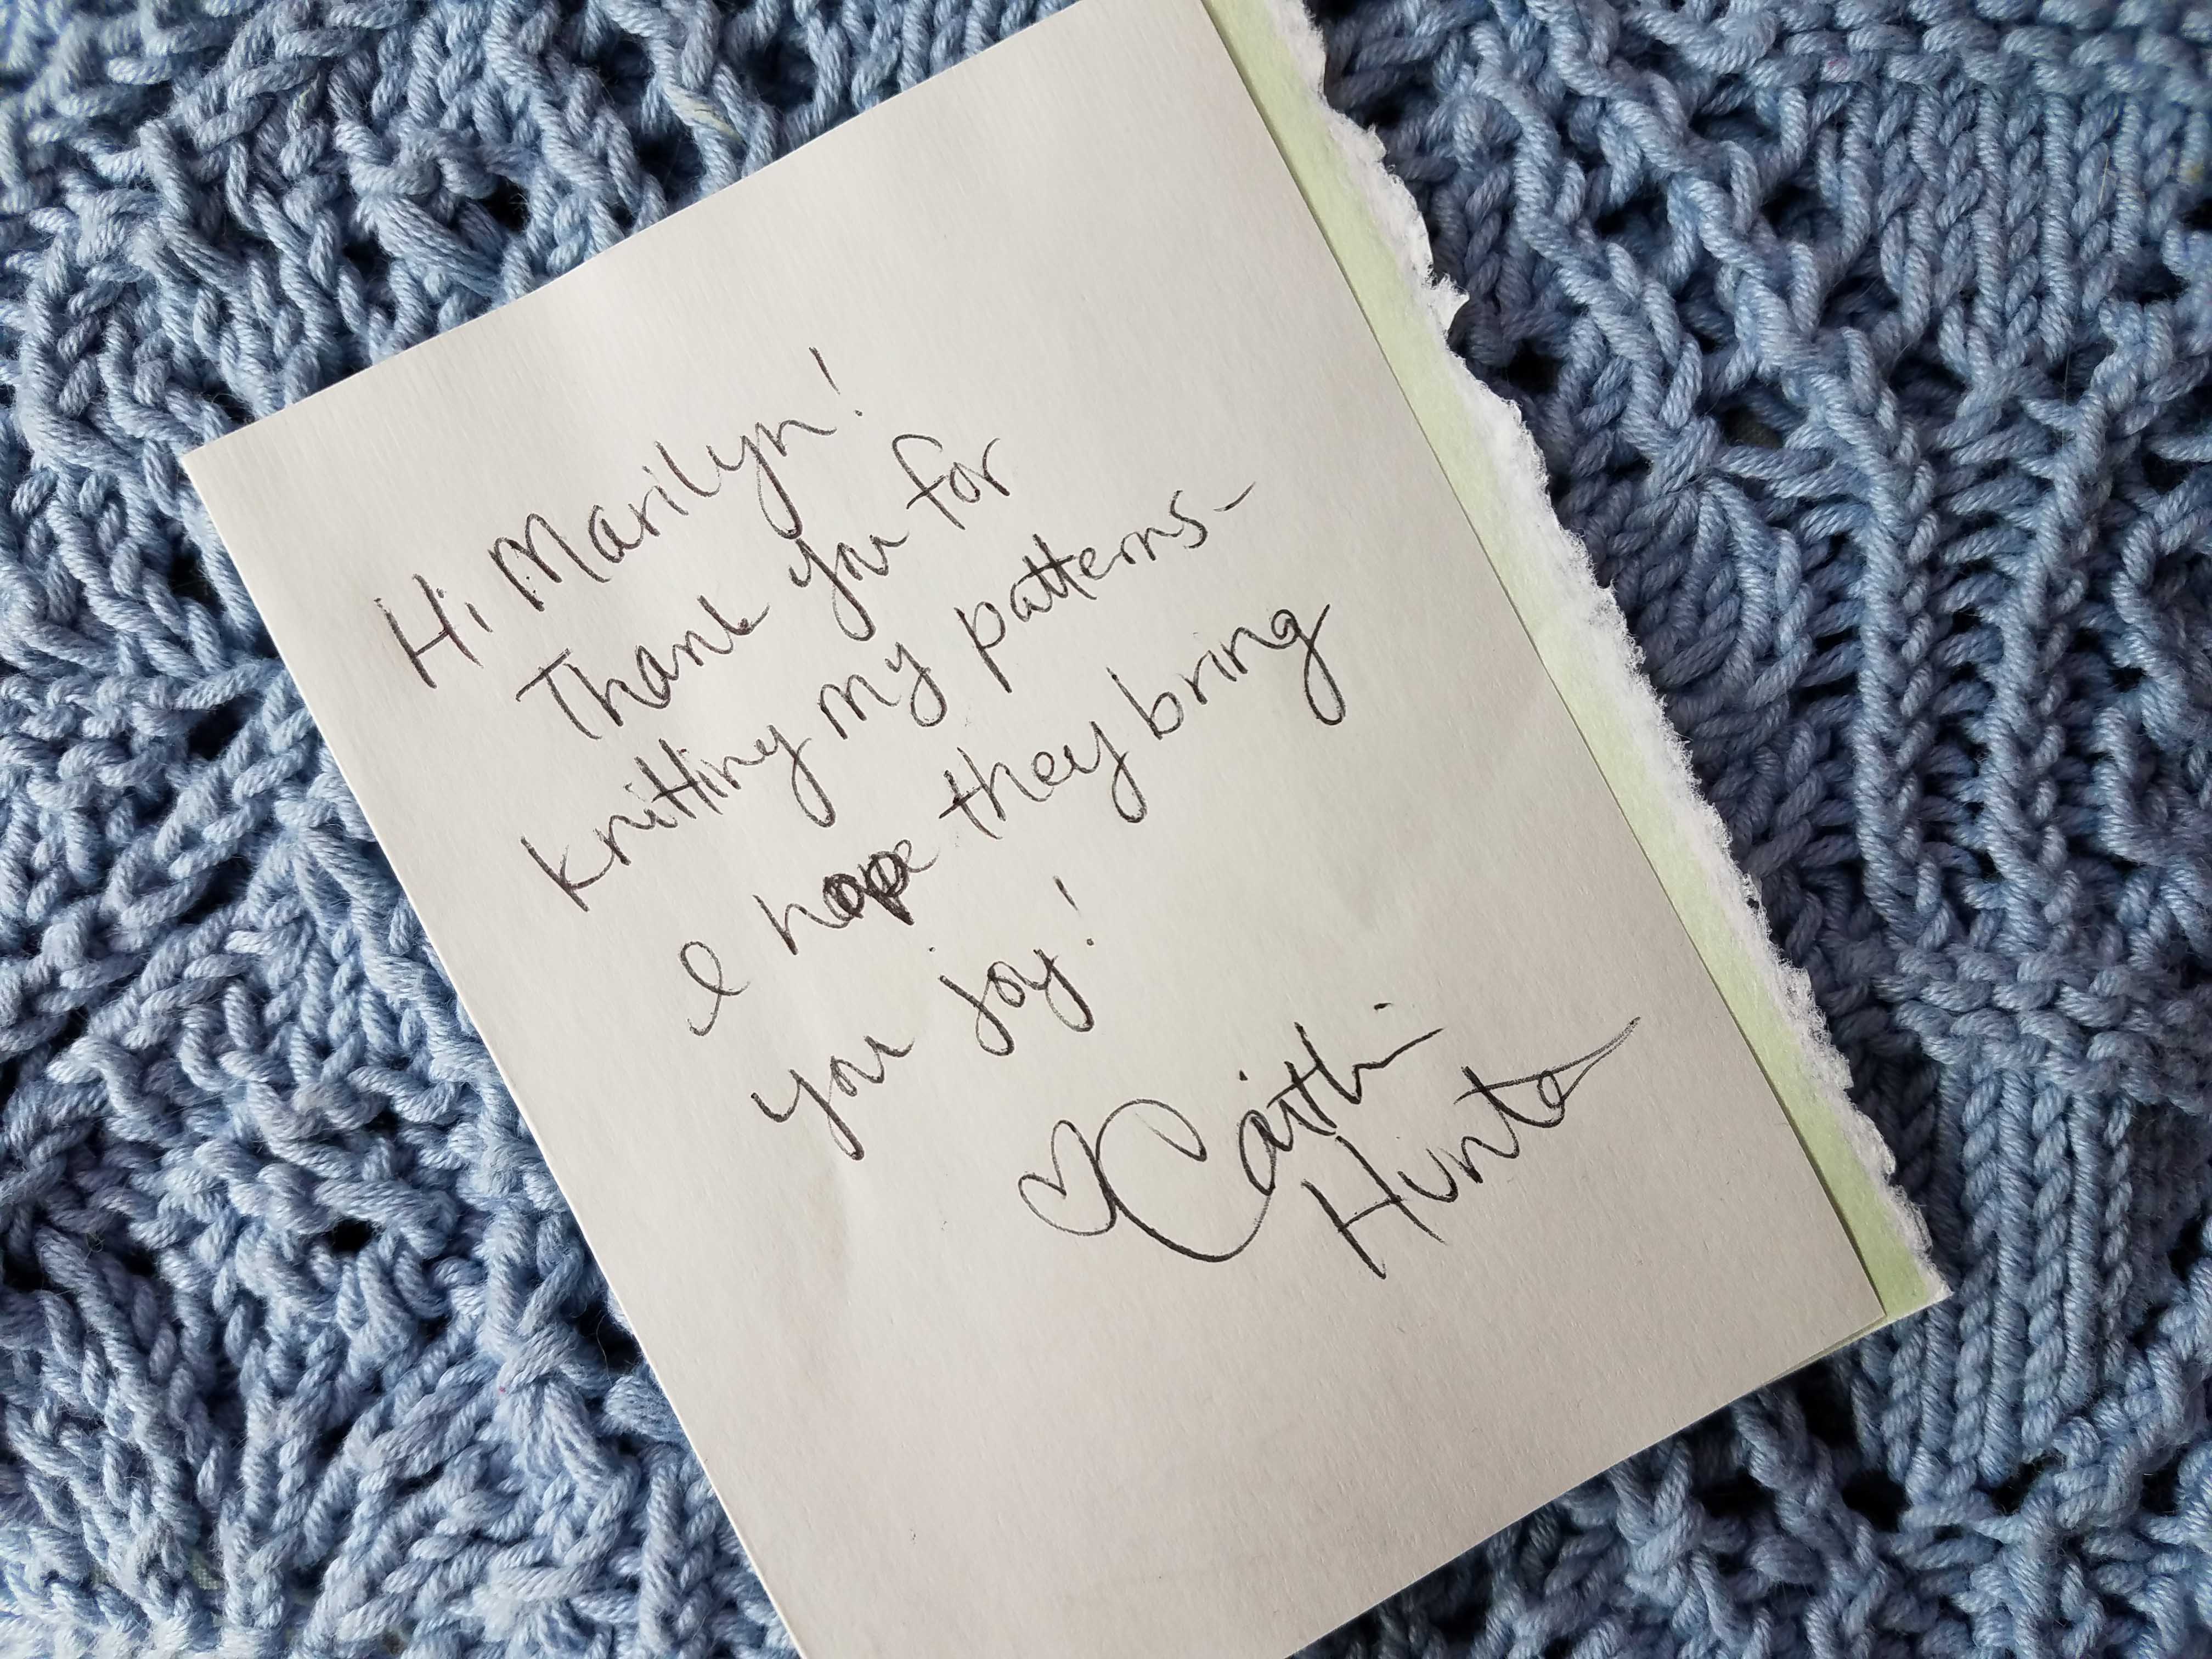 Hi Marilyn!
Thank you for
knitting my patterns-
I hope they bring
you joy!
♡Caitlin
Hunter